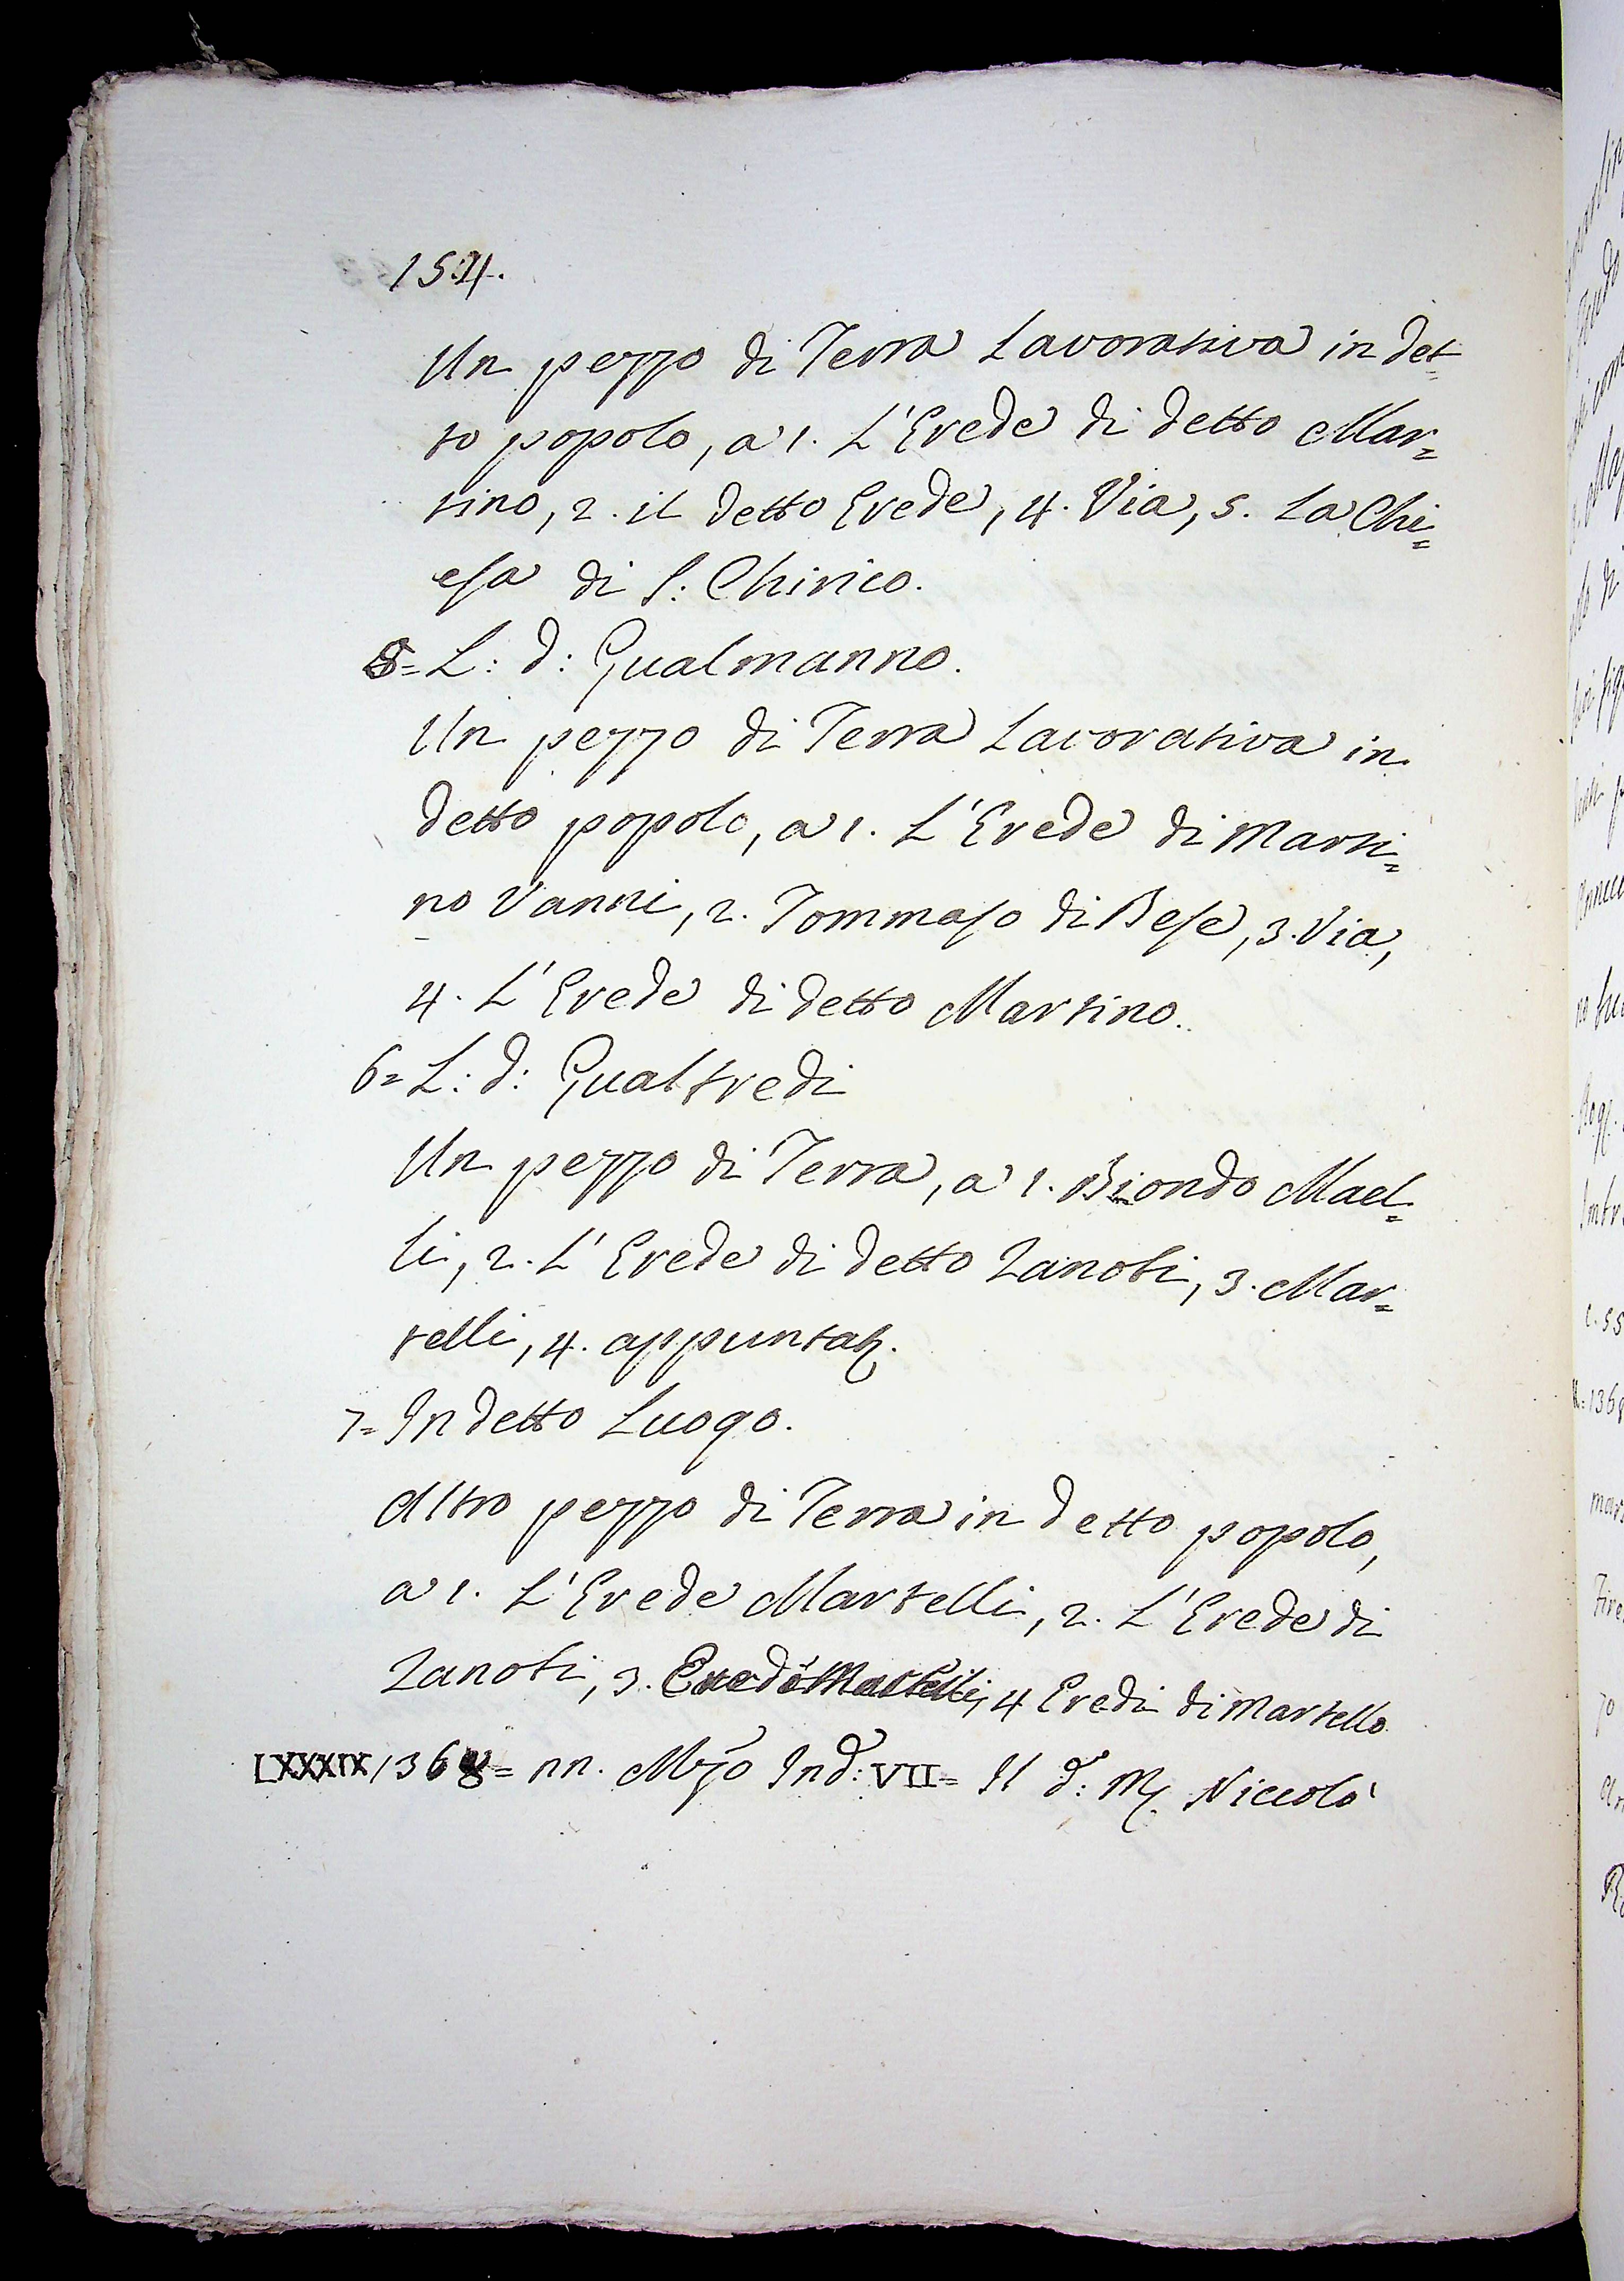 154.
Un pezzo di Terra Lavorativa in det=
to popolo, a 1. L'Erede di detto Mar=
tino, 2. il detto Erede, 4. Via, 5. La Chi=
esa di S: Chirico.
5= L: d: Gualmanno.
Un pezzo di Terra Lavorativa in
detto popolo, a 1. L'Erede di Marti=
no Vanni, 2. Tommaso di Bese, 3. Via,
4. L'Erede di detto Martino.
6= L: d: Gualfredi
Un pezzo di Terra, a 1. Biondo Mael=
li, 2. L'Erede di detto Zanobi, 3. Mar=
telli, 4.
7= In detto Luogo.
Altro pezzo di Terra in detto popolo,
a 1. L'Erede Martelli, 2. L'Erede di
Zanobi, 3. Eredi Martelli, 4 Eredi di Martello
LXXXIX 1368= nn. Mzo Ind: VII= Il d: Niccolò